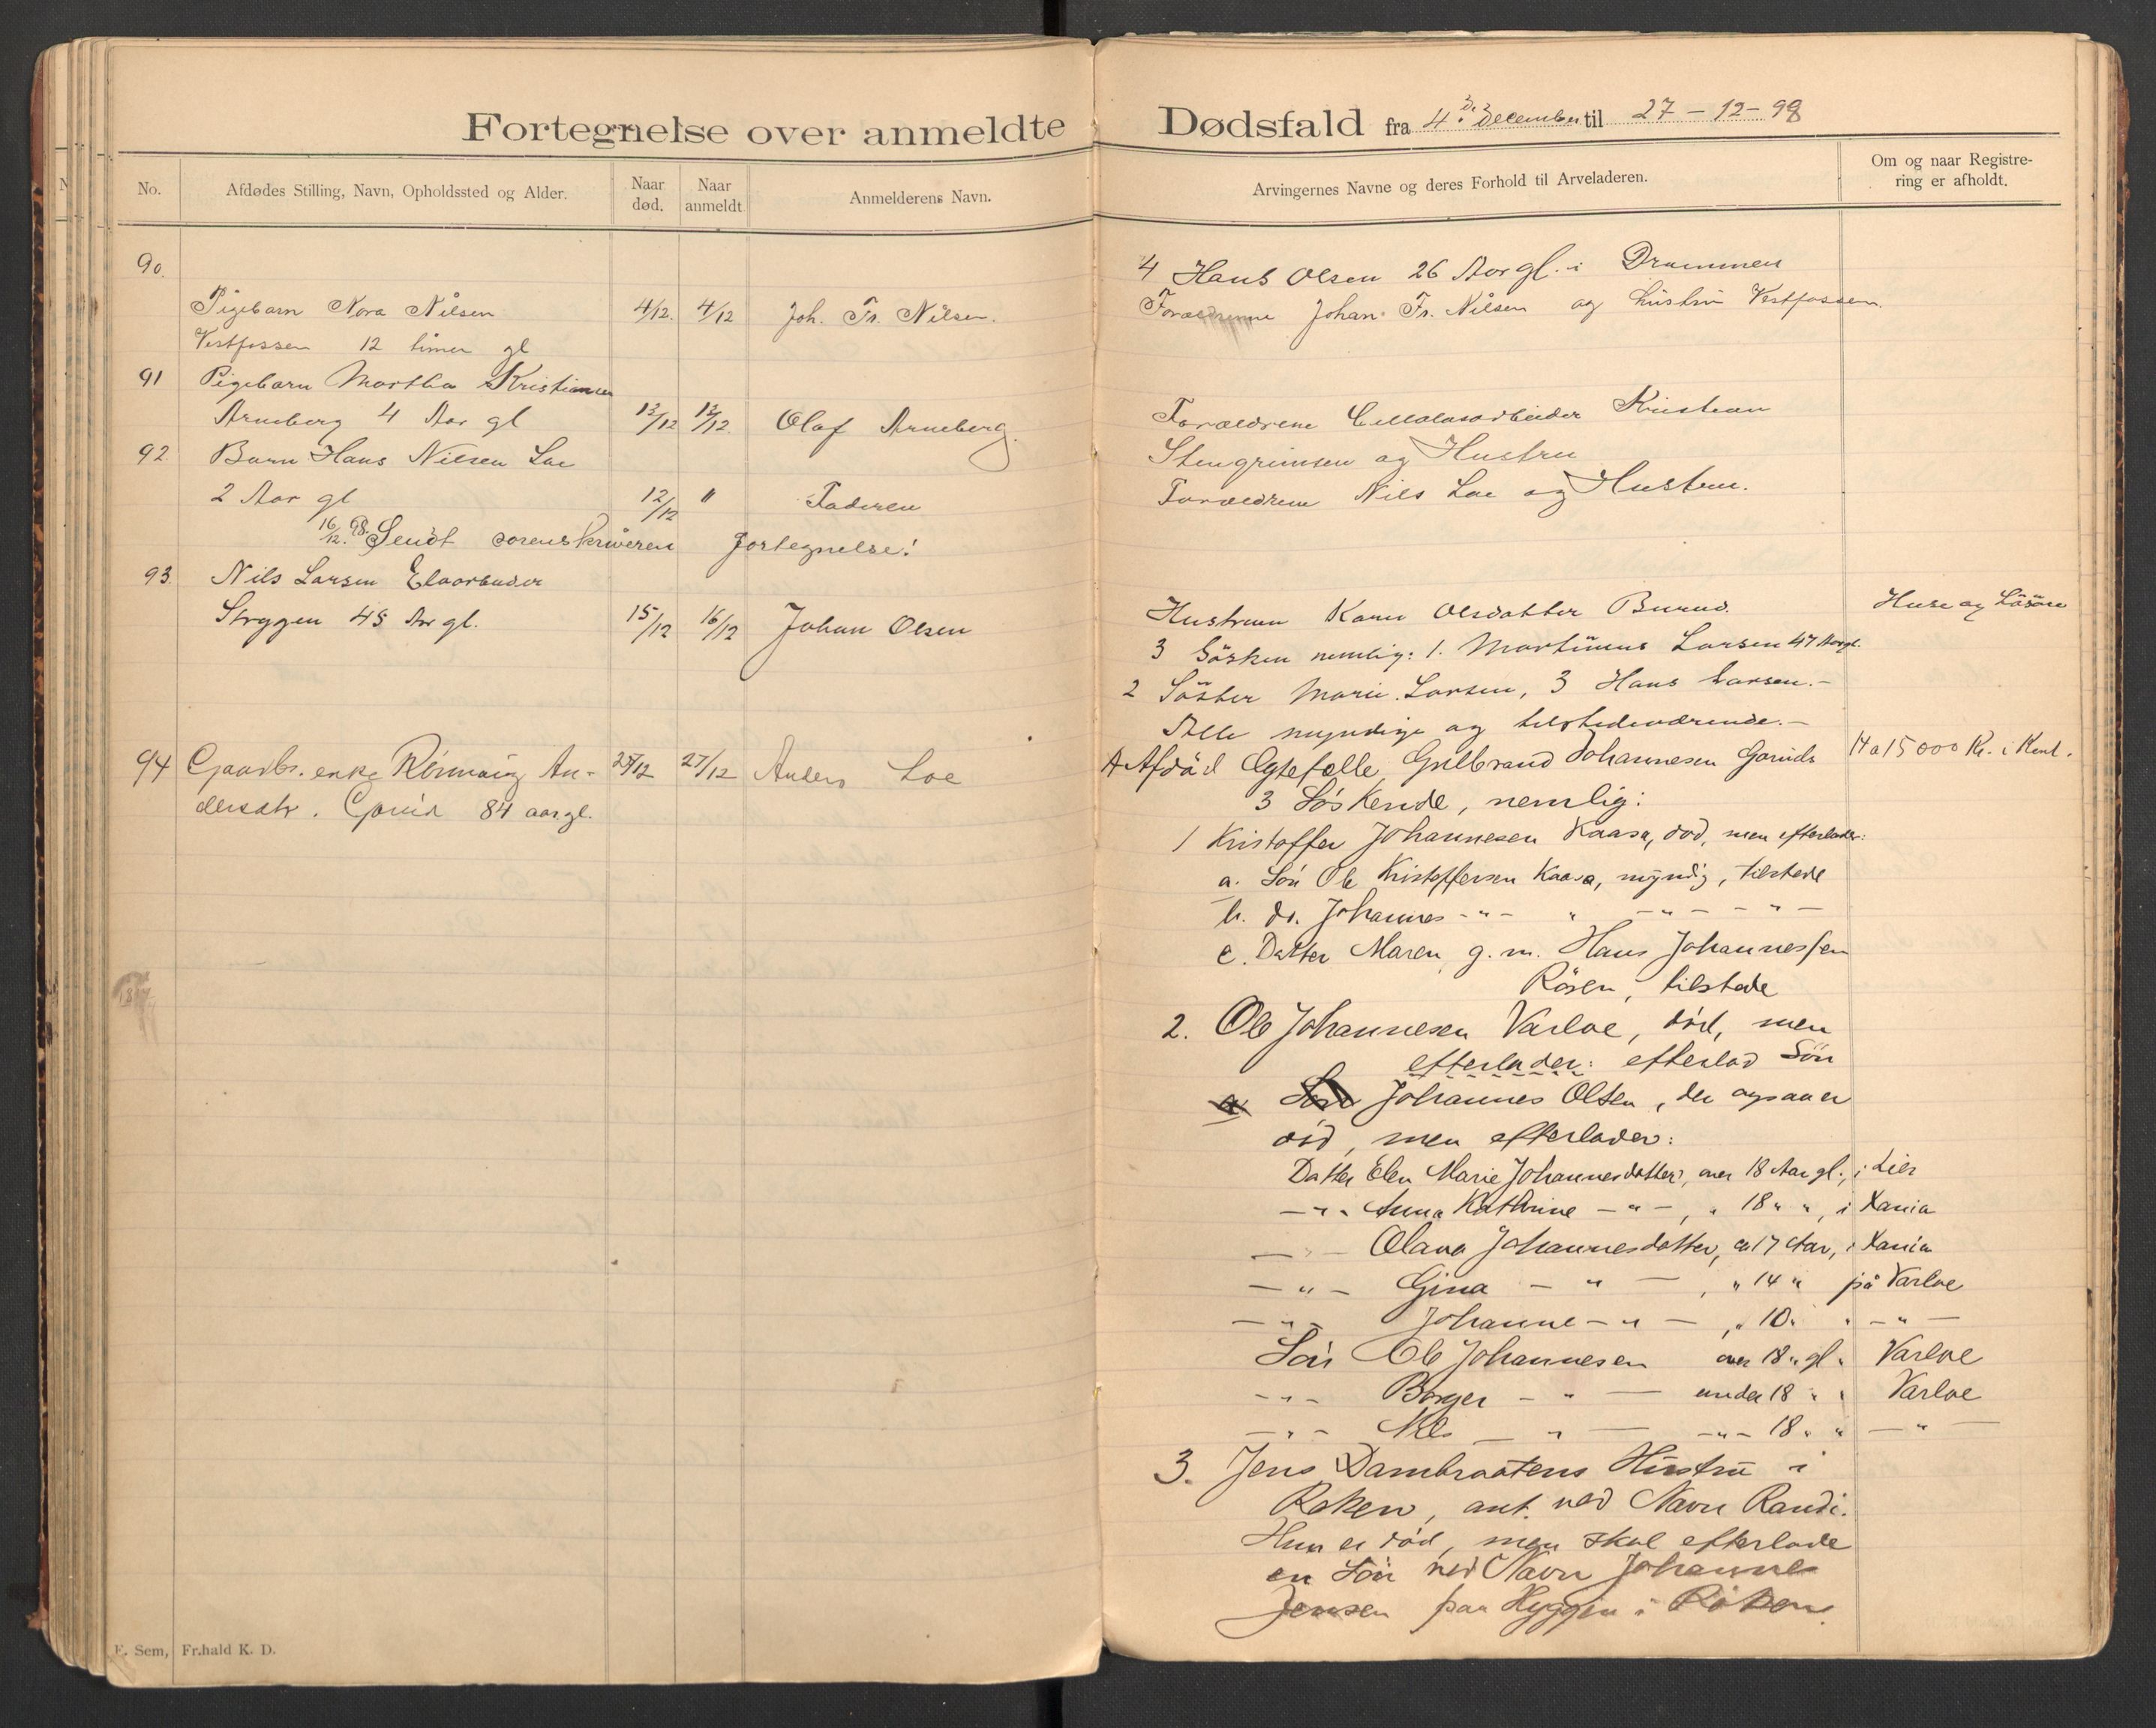 Fortegnelse over anmeldte
No.
Afdødes Stilling, Navn, Opholdssted og Alder.
Naar død.
Naar anmeldt
Anmelderens Navn.
90.
Pigebarn Nora Nilsen 4/12. 4/12 Joh. Fr. Nilsen.
Vestfossen 12 timer gl
91 Pigebarn Martha Kristiansen
Arneberg 4 Aar gl 13/12 13/12 Olaf Arneberg.
92 Barn Hans Nilsen Loe
2 Aar gl 12/12 " Faderen
16/12. 98. Sendt sorenskriveren fortegnelse!
93. Nils Larsen
45 Aar gl. 15/12 16/12 Johan Olsen
94 Gaardbr. enke Rönnaug An- 25/12 27/12 Anders Loe
dersdtr. Gorud 84 aar gl.
E. Sem, Fr.hald K. D.
Dødsfald fra 4. December til 27-12-98
Arvingernes Navne og deres Forhold til Arveladeren.
Om og naar Registre-
ring er afholdt.
4 Hans Olsen 26 Aar gl. i Drammen
Forældrene Johan Fr. Nilsen og hustru Vestfossen.
Forældrene Cellulosarbeider Kristian
Stengrimsen og Hustru
Forældrene Nils Loe og Hustru.
Hustruen Karen Olsdatter Burud. Huse og Løsøre
3 Søsken nemlig: 1. Martinius Larsen 47 Aar gl.
2 Søster Marie Larsen, 3 Hans Larsen.-
Alle myndige og tilstedeværende.-
Afdöd Ægtefælle, Gulbrand Johannesen Goruds 14 a 15000 Kr. i Kont.
3 Söskende, nemlig:
1 Kristoffer Johannesen Kaasa, död, men efterlader:
a. Sön Ole Kristoffersen Kaasa, myndig, tilstede
b. do. Johannes -"- " -"- -"-
c. Datter Maren, g. m. Hans Johannessen
Rösen, tilstede
2. Ole Johannesen Varloe, död, men
efterlader: efterlod Sön
a Sön Johannes Olsen, der ogsaa er
död, men efterlader:
Datter Elen Marie Johannesdatter, over 18 Aar gl., i Lier
-"- Anna Kathrine -"-, " 18 " ", i Xania
-"- Olava Johannesdatter, ca 17 Aar, i Xania
-"- Gina -"-, " 14 " på Varloe
-"- Johanne -"-, " 10 " " -"-
Sön Ole Johannesen over 18 " gl. " Varloe
-"- Borger -"- under 18 " " Varloe
-"- Nils -"- -"- 18 " " -"-
3. Jens Dambraatens Hustru i
Röken, ant. ved Navn Randi.
Hun er död, men skal efterlade
en Sön ved Navn Johannes
Jensen paa Hyggen i Röken.